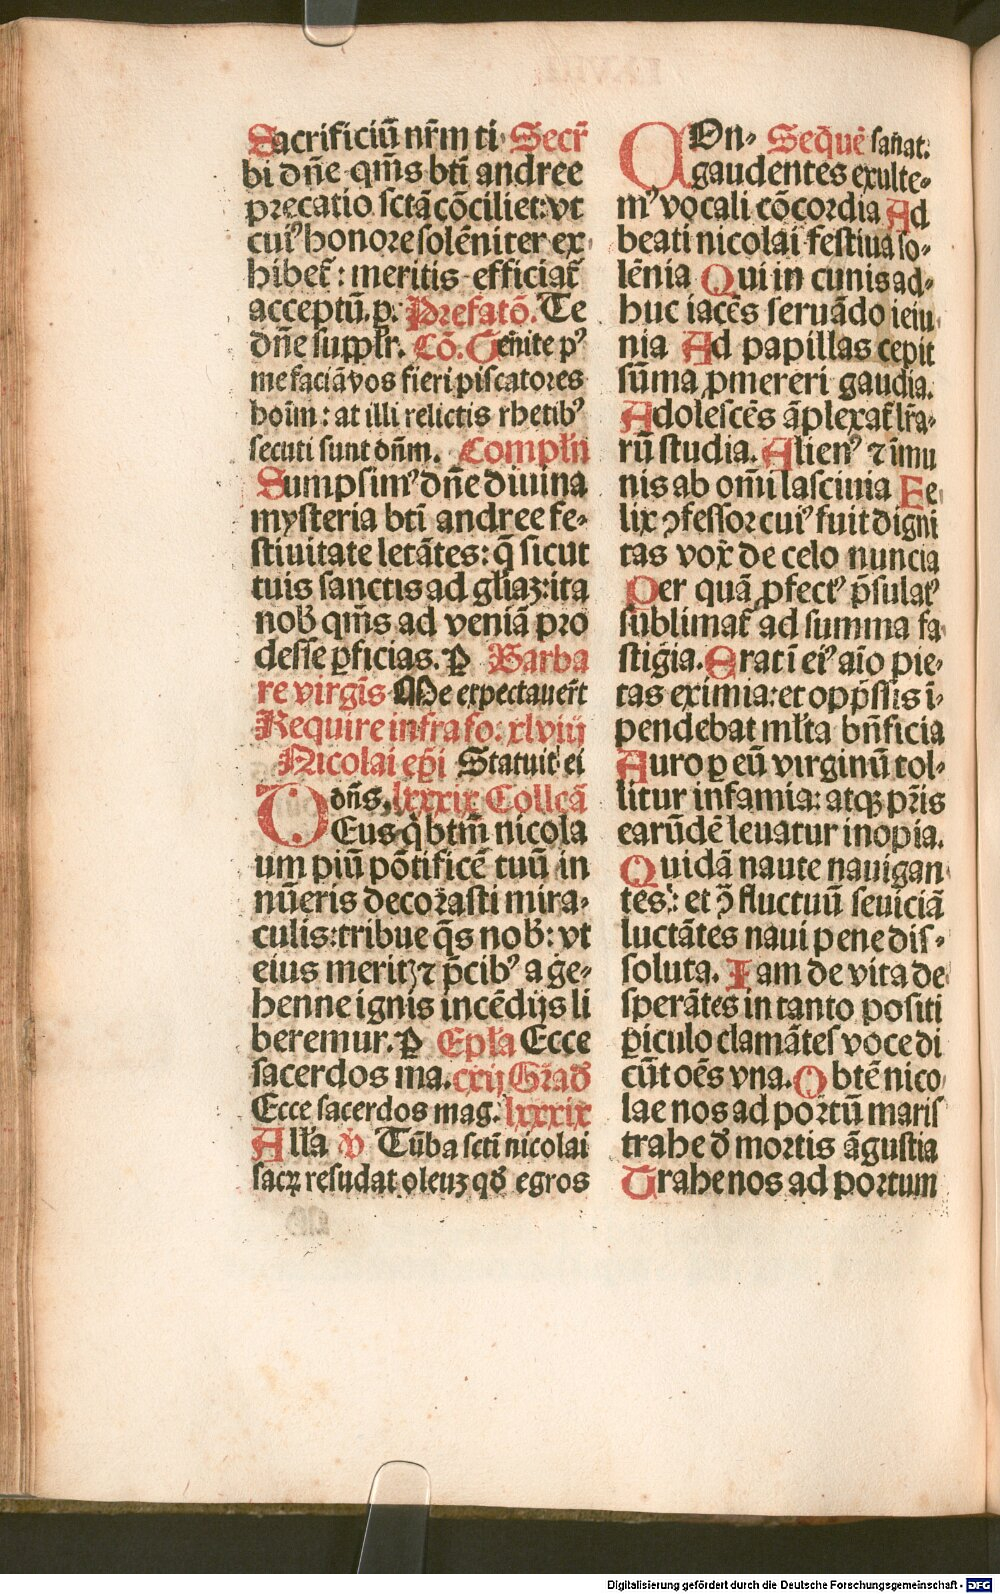 Sacrificiū nr̄m ti Secr̄
bi dn̄e qm̄s bt̄i andree
precatio sctā cōciliet: vt
cui⁹ honore solēniter ex
hibet̄: meritis efficiat̄
acceptū. p. Prefatō. Te
dn̄e supplr̄. Cō. Uen̄ite p⁹
me faciā vos fieri piscatores
hoīm: at illi relictis rhetib⁹
secuti sunt dn̄m. Compln̄
Sumpsim⁹ dn̄e diuina
mysteria bt̄i andree fe-
stiuitate letātes: q̄ sicut
tuis sanctis ad gl̄iaz: ita
nob̄ qm̄s ad veniā pro
desse ꝑficias. P Barba
re virgīs Me expectauer̄t
Require infra fo. xlviij
Nicolai ep̄i Statuit ei
dn̄s. lxxxix Collcā
DEus q̄ btm̄ nicola
um piū pōtificē tuū in
nūeris decorasti mira-
culis: tribue q̄s nob̄: vt
eius meritꝭ ⁊ p̄cib⁹ a ge-
henne ignis incēdijs li
beremur. P Epl̄a Ecce
sacerdos ma. cxij Grad̄
Ecce sacerdos mag. lxxxix
All̄a v Tūba sct̄i nicolai
sacꝝ resudat oleuz qd̄ egros
COn- Seq̄uē san̄at.
gaudentes exulte-
m⁹ vocali cōcordia Ad
beati nicolai festiua so-
lēnia Qui in cunis ad-
huc iacēs seruādo ieiu
nia Ad papillas cepit
sūma ꝓmereri gaudia.
Adolescēs āplexat̄ lr̄a-
rū studia. Alien⁹ ⁊ īmu
nis ab om̄i lasciuia Fe
lix ꝯfessor cui⁹ fuit digni
tas vox de celo nuncia
Per quā ꝓfect⁹ p̄sulat⁹
sublimat̄ ad summa fa
stigīa. Erat ī ei⁹ aīo pie-
tas eximia: et opp̄ssis ī-
pendebat ml̄ta bn̄ficia
Auro ꝑ eū virginū tol-
litur infamia: atqꝫ pr̄is
earūdē leuatur inopia.
Quidā naute nauigan
tes: et ꝯ̄ fluctuū seuiciā
luctātes naui pene dis-
soluta. Iam de vita de
sperātes in tanto positi
ꝑiculo clamātes voce di
cūt oēs vna. O btē nico
lae nos ad portū maris
trahe d̄ mortis āgustia
Trahe nos ad portum
Digitalisierung gefördert durch die Deutsche Forschungsgemeinschaft - DFG